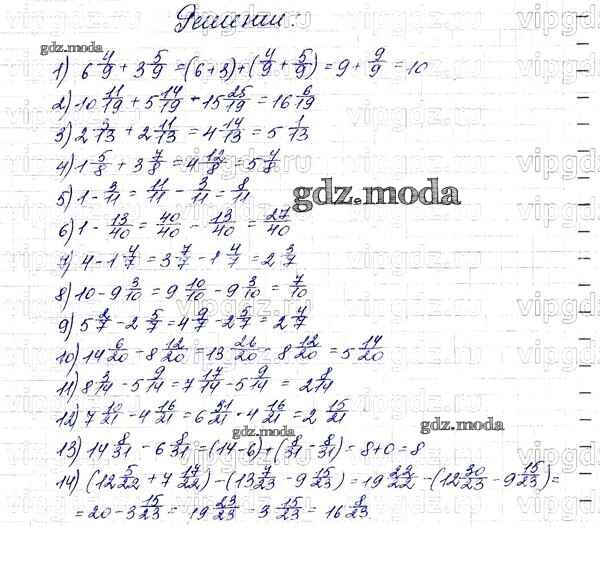 Решения:
1) 6 4/9 + 3 5/9 = (6 + 3) + (4/9 + 5/9) = 9 + 9/9 = 10
2) 10 11/19 + 5 14/19 = 15 25/19 = 16 6/19
3) 2 3/13 + 2 11/13 = 4 14/13 = 5 1/13
4) 1 5/8 + 3 7/8 = 4 12/8 = 5 4/8
5) 1 - 3/11 = 11/11 - 3/11 = 8/11
6) 1 - 13/40 = 40/40 - 13/40 = 27/40
7) 4 - 1 4/7 = 3 7/7 - 1 4/7 = 2 3/7
8) 10 - 9 3/10 = 9 10/10 - 9 3/10 = 7/10
9) 5 2/7 - 2 5/7 = 4 9/7 - 2 5/7 = 2 4/7
10) 14 6/20 - 8 12/20 = 13 26/20 - 8 12/20 = 5 14/20
11) 8 3/14 - 5 9/14 = 7 17/14 - 5 9/14 = 2 8/14
12) 7 10/21 - 4 16/21 = 6 31/21 - 4 16/21 = 2 15/21
13) 14 8/31 - 6 8/31 = (14 - 6) + (8/31 - 8/31) = 8 + 0 = 8
14) (12 5/22 + 7 17/22) - (13 7/23 - 9 15/23) = 19 22/22 - (12 30/23 - 9 15/23) =
= 20 - 3 15/23 = 19 23/23 - 3 15/23 = 16 8/23
gdz.moda
gdz.moda
gdz.moda
gdz.moda
vipgdz.ru